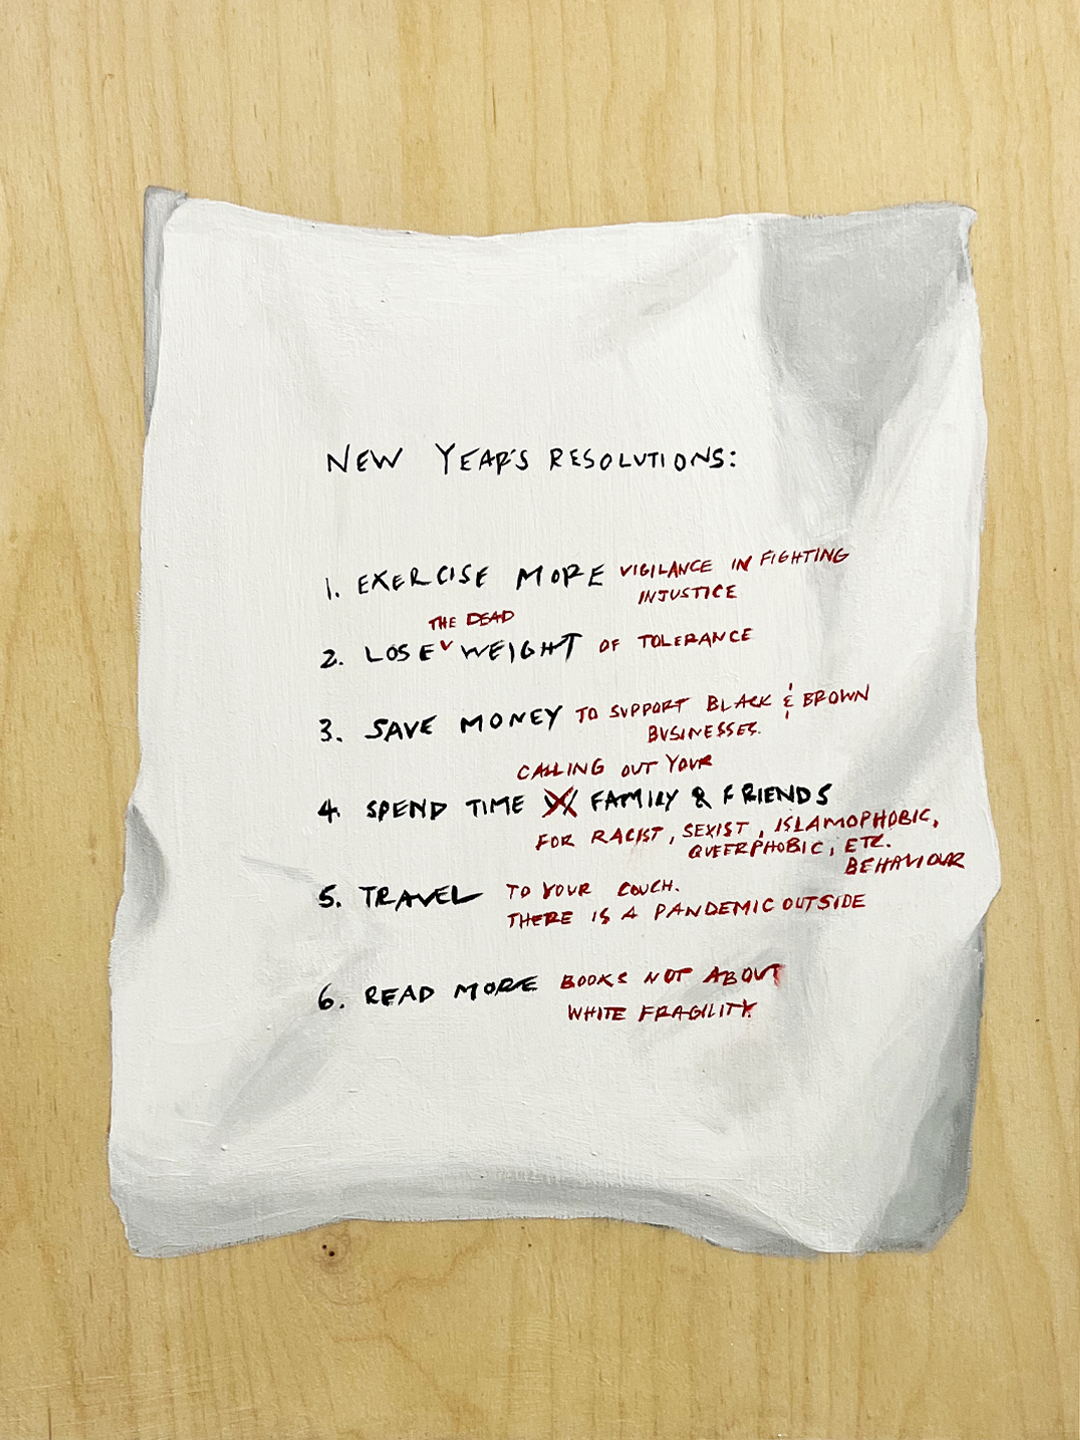 NEW YEAR'S RESOLUTIONS:
1. EXERCISE MORE VIGILANCE IN FIGHTING
INJUSTICE
THE DEAD
2. LOSE ˅ WEIGHT OF TOLERANCE
3. SAVE MONEY TO SUPPORT BLACK & BROWN
BUSINESSES.
CALLING OUT YOUR
4. SPEND TIME W/ FAMILY & FRIENDS
FOR RACIST, SEXIST, ISLAMOPHOBIC,
QUEERPHOBIC, ETC.
BEHAVIOUR
5. TRAVEL TO YOUR COUCH.
THERE IS A PANDEMIC OUTSIDE
6. READ MORE BOOKS NOT ABOUT
WHITE FRAGILITY